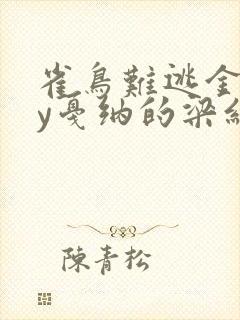 雀鳥難逃金
y戛纳的梁纟
陳青松